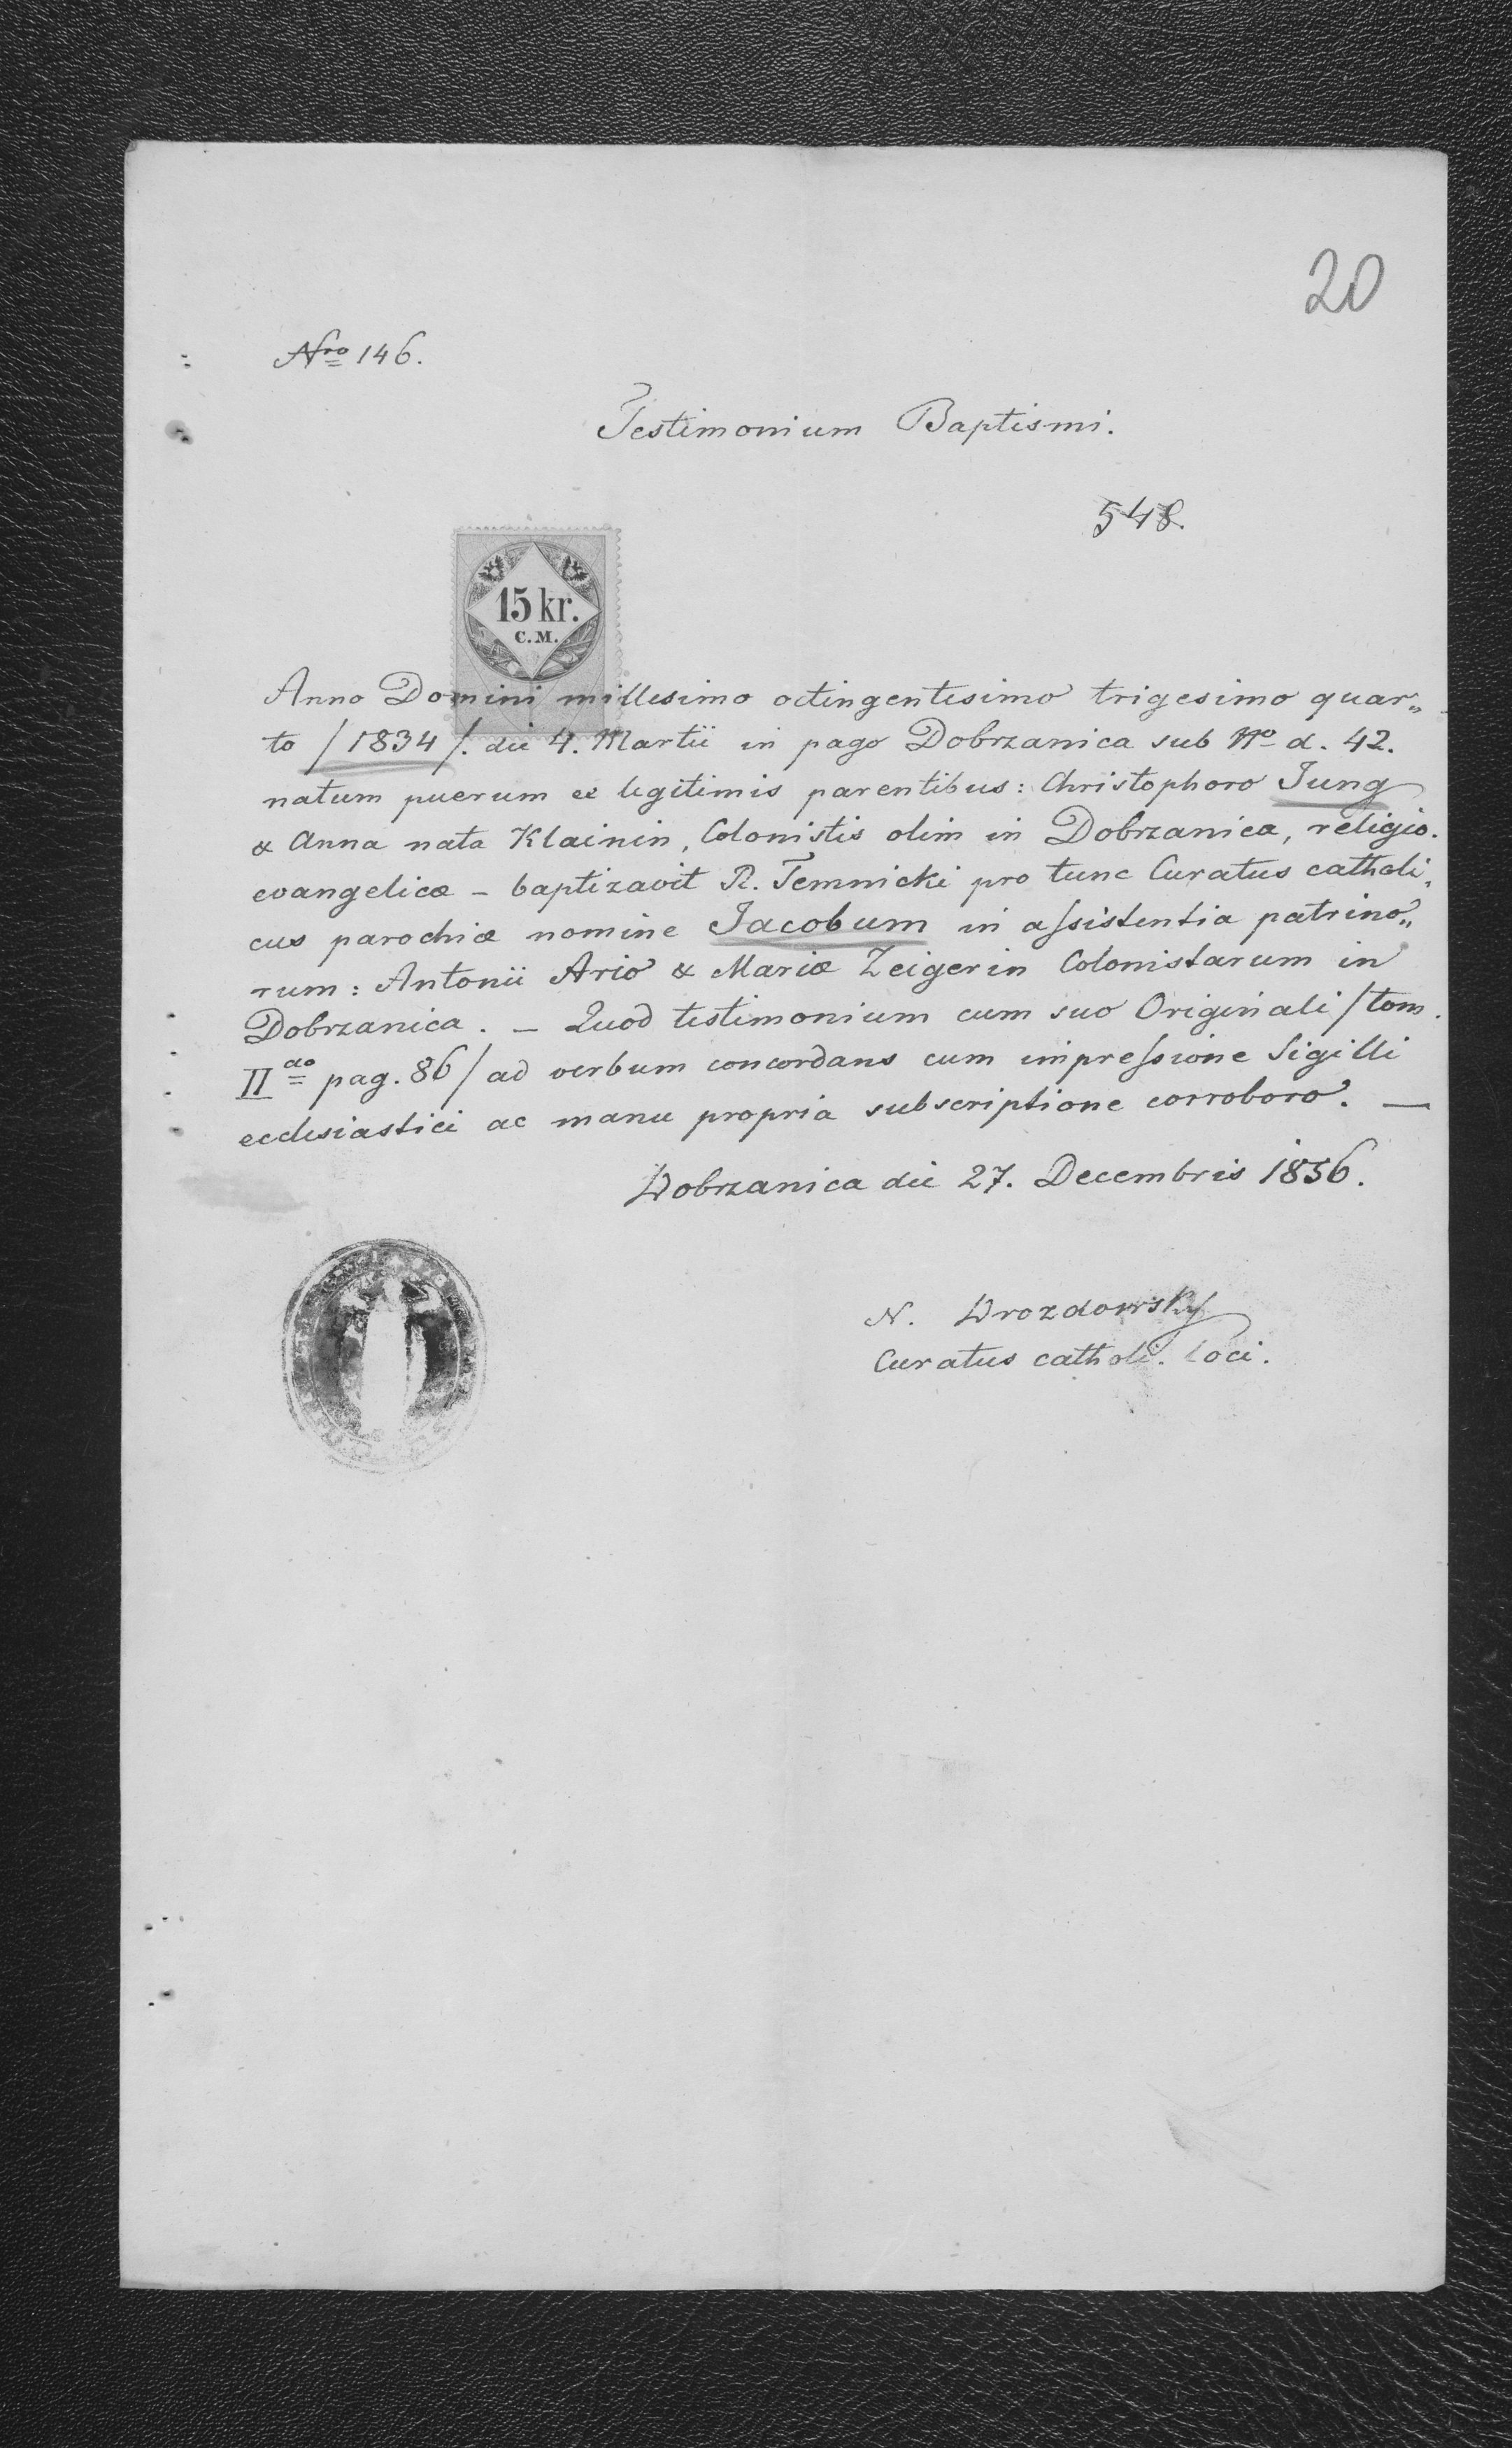 20
Nro 146.
Testimonium Baptismi.
548.
15 kr.
C.M.
Anno Domini millesimo octingentesimo trigesimo quar„
to /1834/. die 4. Martii in pago Dobrzanica sub No d. 42.
natum puerum ex legitimis parentibus: Christophoro Jung
& Anna nata Klainin, Colonistis olim in Dobrzanica, religio.
evangelicæ – baptizavit R. Temnicki pro tunc Curatus catholi„
cus parochiæ nomine Jacobum in aſsistentia patrino„
rum: Antonii Ario & Mariæ Zeigerin Colonistarum in
Dobrzanica. – Quod testimonium cum suo Originali /tom.
II do pag. 86/ ad verbum concordans cum impreſsione Sigilli
ecclesiastici ac manu propria subscriptione corroboro. —
Dobrzanica die 27. Decembris 1856.
N. Drozdowsky
Curatus catholi. loci.